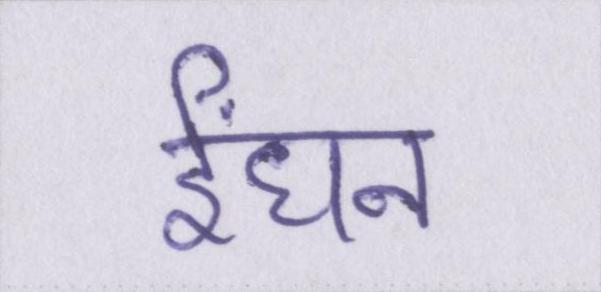 ईंधन